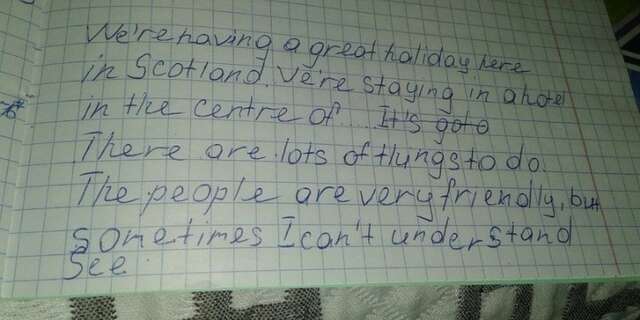 We're having a great haliday here
in Scotland. We're staying in a hotel
in the centre of..... It's goto
There are lots of things to do.
The people are very friendly, but
sometimes I can't understand
See